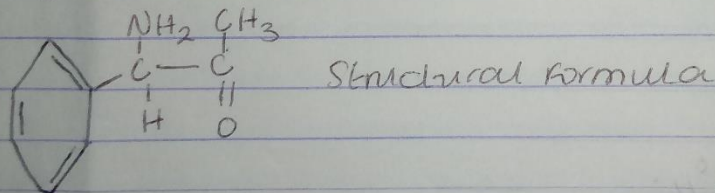 NH2 CH3
C — C
Structural Formula
H O